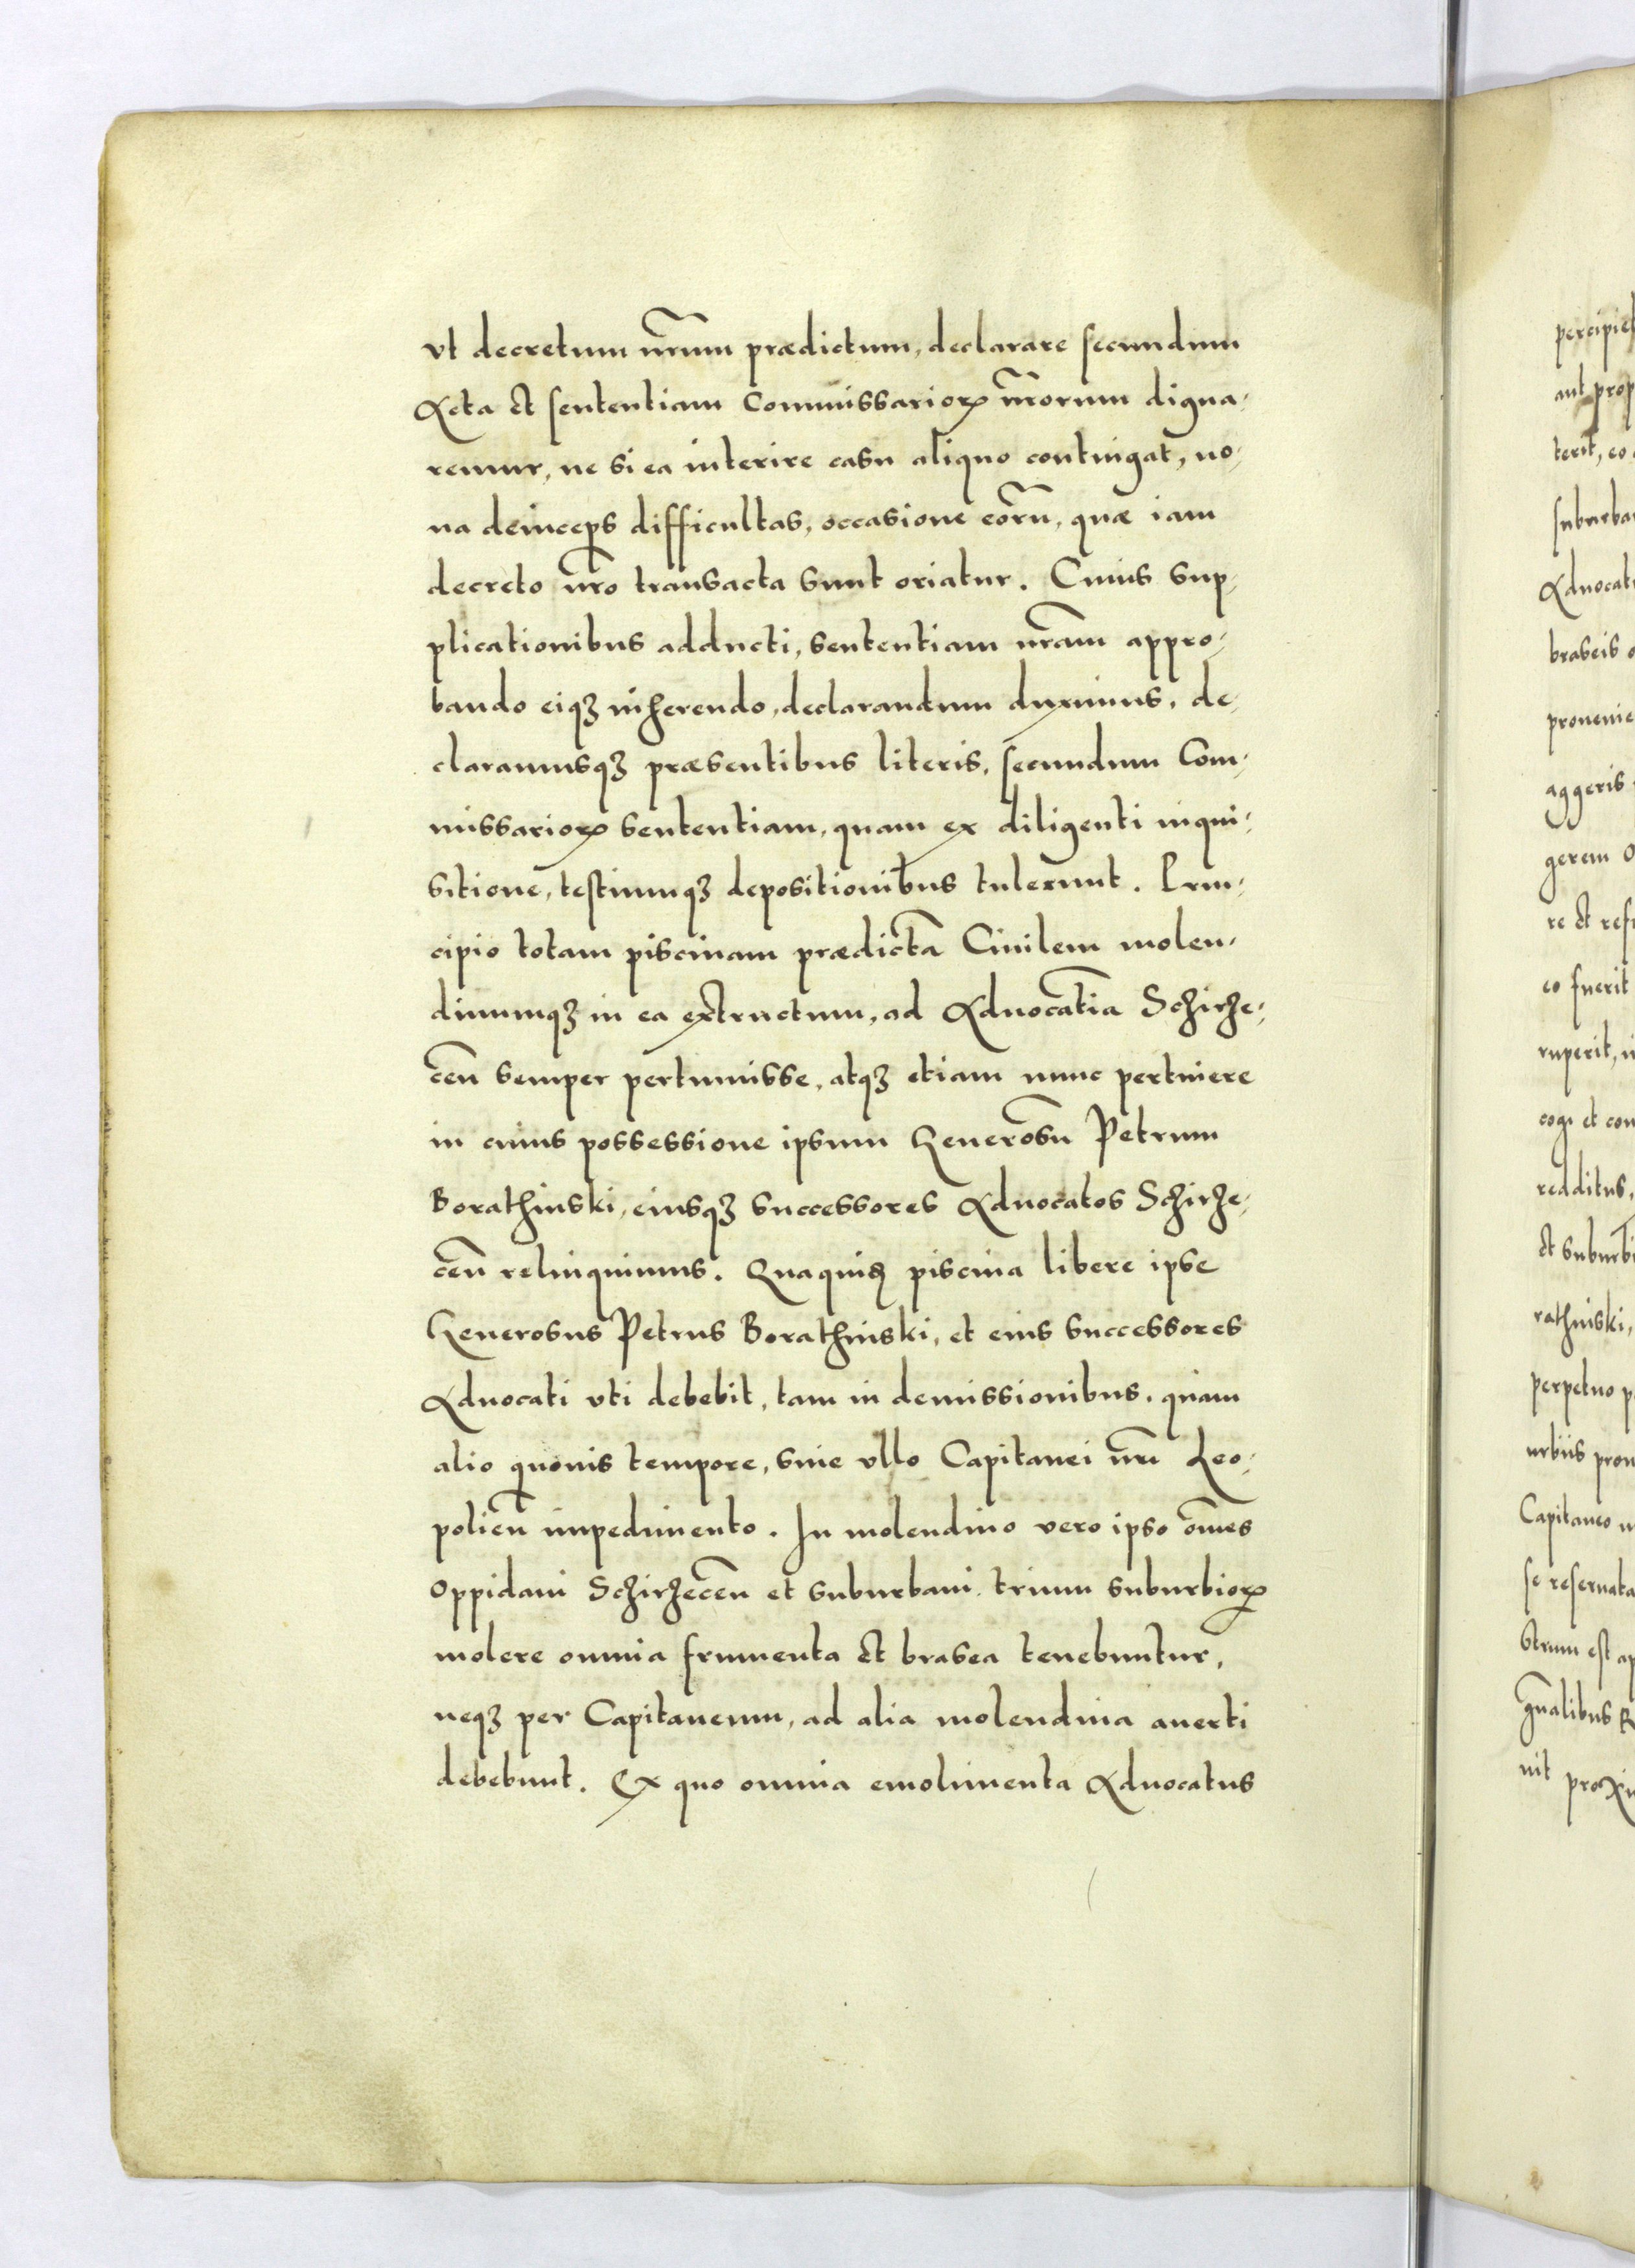 vt decretum nr̃um prædictum, declarare secundum
Acta et sententiam Commissarioꝝ nr̃orum digna-
remur, ne si ea interire casu aliquo contingat, no-
ua deinceps difficultas, occasione eorũ, quæ iam
decreto nr̃o transacta sunt oriatur. Cuius sup-
plicationibus adducti, sententiam nr̃am appro-
bando eiqꝫ inherendo, declarandum duximus, de-
claramusqꝫ præsentibus literis, secundum Com-
missarioꝝ sententiam, quam ex diligenti inqui-
sitione, testiumqꝫ depositionibus tulerunt. Prin-
cipio totam piscinam prædictã Ciuilem molen-
dinumqꝫ in ea extructum, ad Aduocatiã Schirze-
ceñ semper pertinuisse, atqꝫ etiam nunc pertinere
in cuius possessione ipsum Generosũ Petrum
Borathinski, eiusqꝫ successores Aduocatos Schirze-
ceñ relinquimus. Quaquidẽ piscina libere ipse
Generosus Petrus Borathinski, et eius successores
Aduocati vti debebit, tam in demissionibus, quam
alio quouis tempore, sine vllo Capitanei nr̃i Leo-
polieñ impedimento. In molendino vero ipso om̃es
oppidani Schirzeceñ et suburbani trium suburbioꝝ
molere omnia frumenta et brasea tenebuntur,
neqꝫ per Capitaneum, ad alia molendina auerti
debebunt. Ex quo omnia emolimenta Aduocatus
percipie
aut prop
terit, eo
suburba
Aduocat
braseis
prouenie
aggeris
gerem
re et refi
eo fuerit
ruperit,
cogi et con
redditus,
et suburbi
rathinski,
perpetuo p
urbiis prou
Capitaneo
se reseruata
strum est ap
gñalibus R
nit proxi